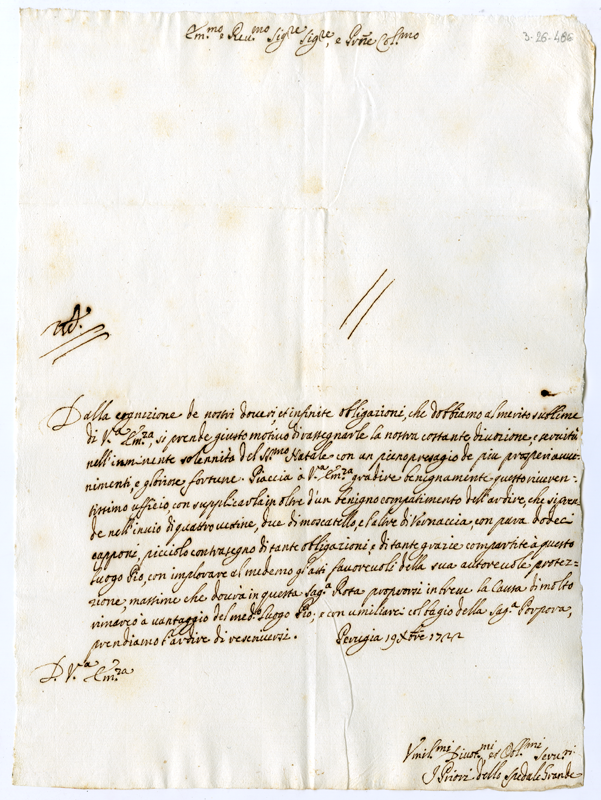 Em.mo e Reu.mo Sig.re Sig.re, e Pro͠ne Col.mo
3-26-486
Dalla cognizione de nostri doueri, et infinite obligazioni, che dobbiamo al merito sublime
di V.ra Em.za, si prende giusto motiuo di rassegnarle la nostra costante diuozione, e seruitù
nell'imminente solennità del SS.mo Natale con un pieno presaggio de piu prosperi auue-
nimenti, e gloriose fortune. Piaccia à V.ra Em.za gradire benignamente questo riueren-
tissimo ufficio, con supplicarla in oltre d'un benigno compatimento dell'ardire, che si pren-
de nell'inuio di quattro uettine, due di moscatello, e l'altre di Vernaccia, con para dodeci
capponi, picciolo contrasegno di tante obligazioni, e di tante grazie compartite à questo
luogo Pio, con implorare al medemo gl'atti fauoreuoli della sua autoreuole protez-
zione, massime che dourà in questa Sag.a Rota proporsi in breue la Causa di molto
rimarco à uantaggio del med.o luogo Pio, e con umiliarci col bagio della Sag.a Porpora,
prendiamo l'ardire di reseriuersi.
Perugia 19 Xbre 1722
D. V.ra Em.za
Vmil.mi Diuot.mi et Obl.mi Seru.ri
I Priori dello Spedale Grande